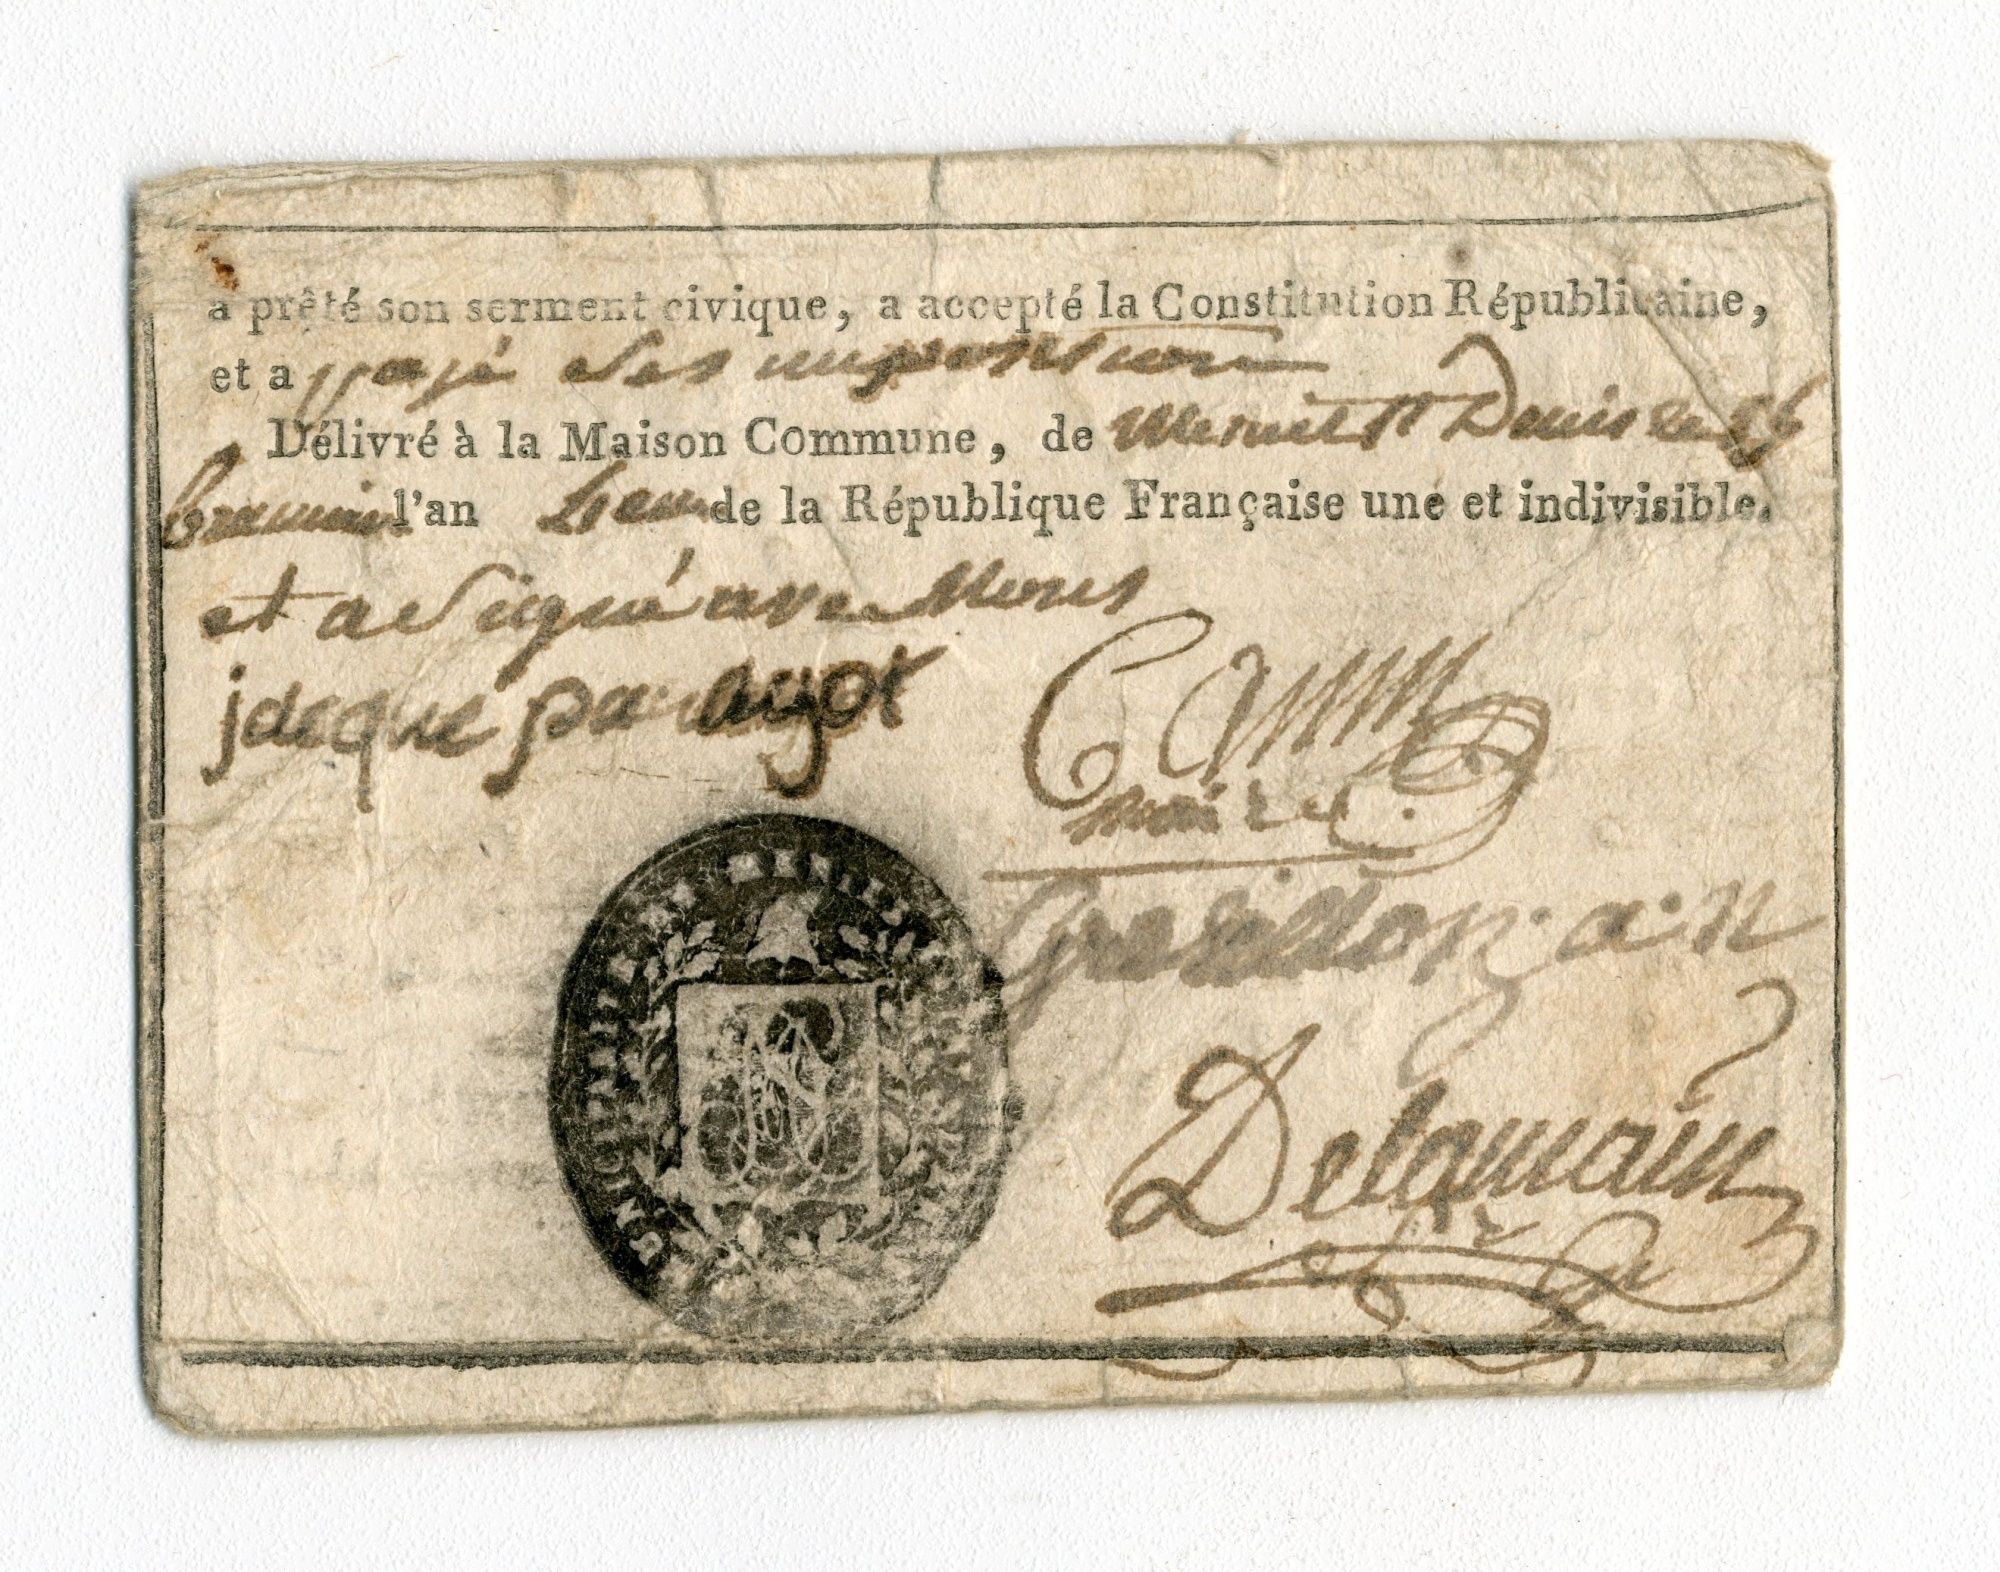 a prêté son serment civique, a accepté la Constitution Républicaine,
et a payé ses impositions
Délivré à la Maison Commune, de Menil St Denis le 26
brumaire l'an de la République Française une et indivisible.
et a Signé avec Nous
jacque
maire
Gresillon a n
Delamain
MUNICIPALITÉ DU MENIL